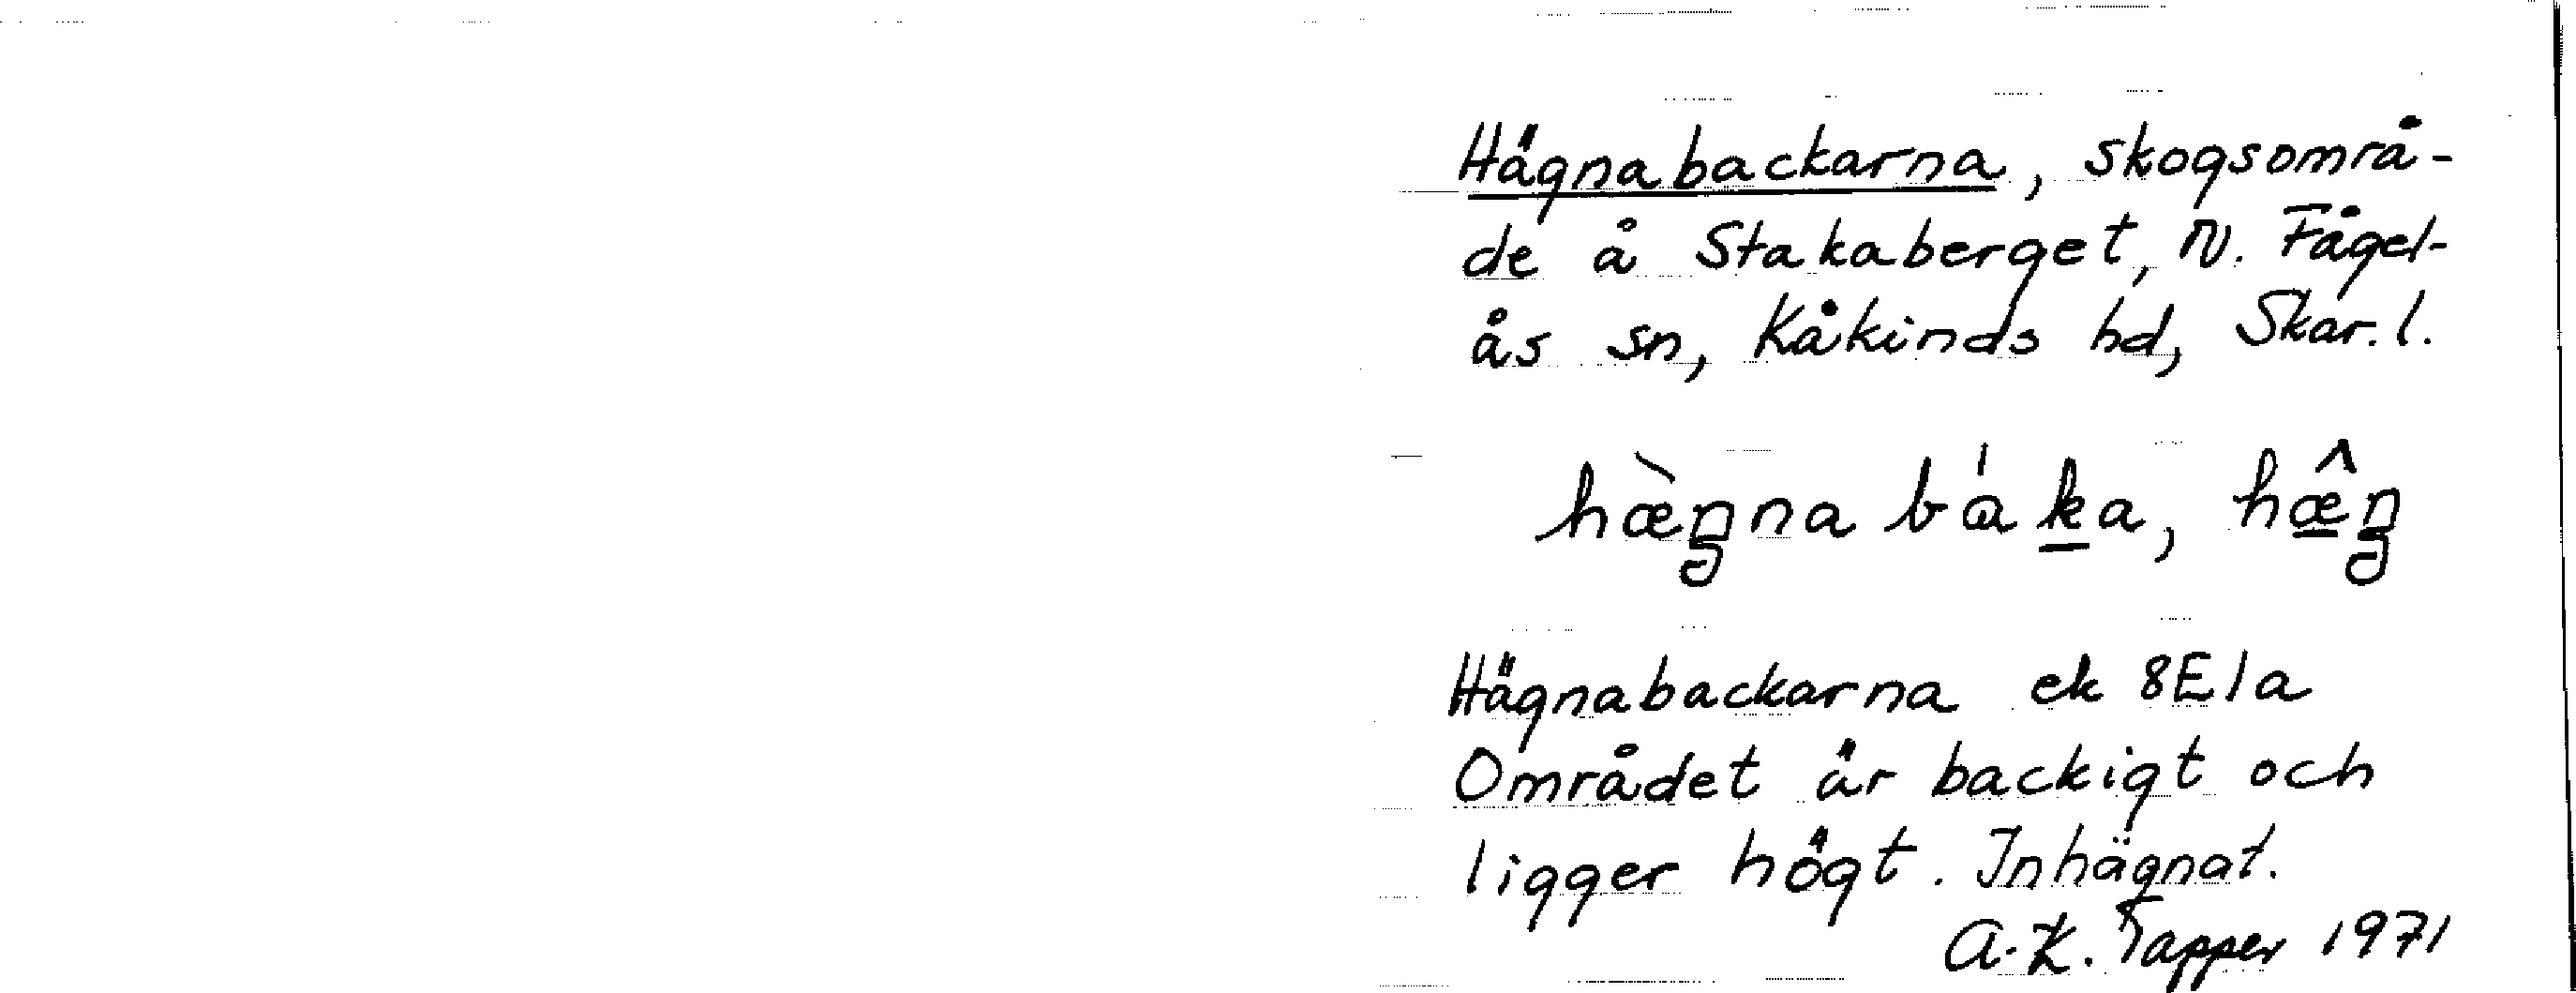 Hägnabackarna, skogsområ-
de å Stakaberget, N. Fågel-
ås sn, Kåkinds hd, Skar. l.
hæ̀ŋna bákа, hæ̂ŋ
Hägnabackarna ek 8E1a
Området är backigt och
ligger högt. Inhägnat.
A.-K. Tapper 1971